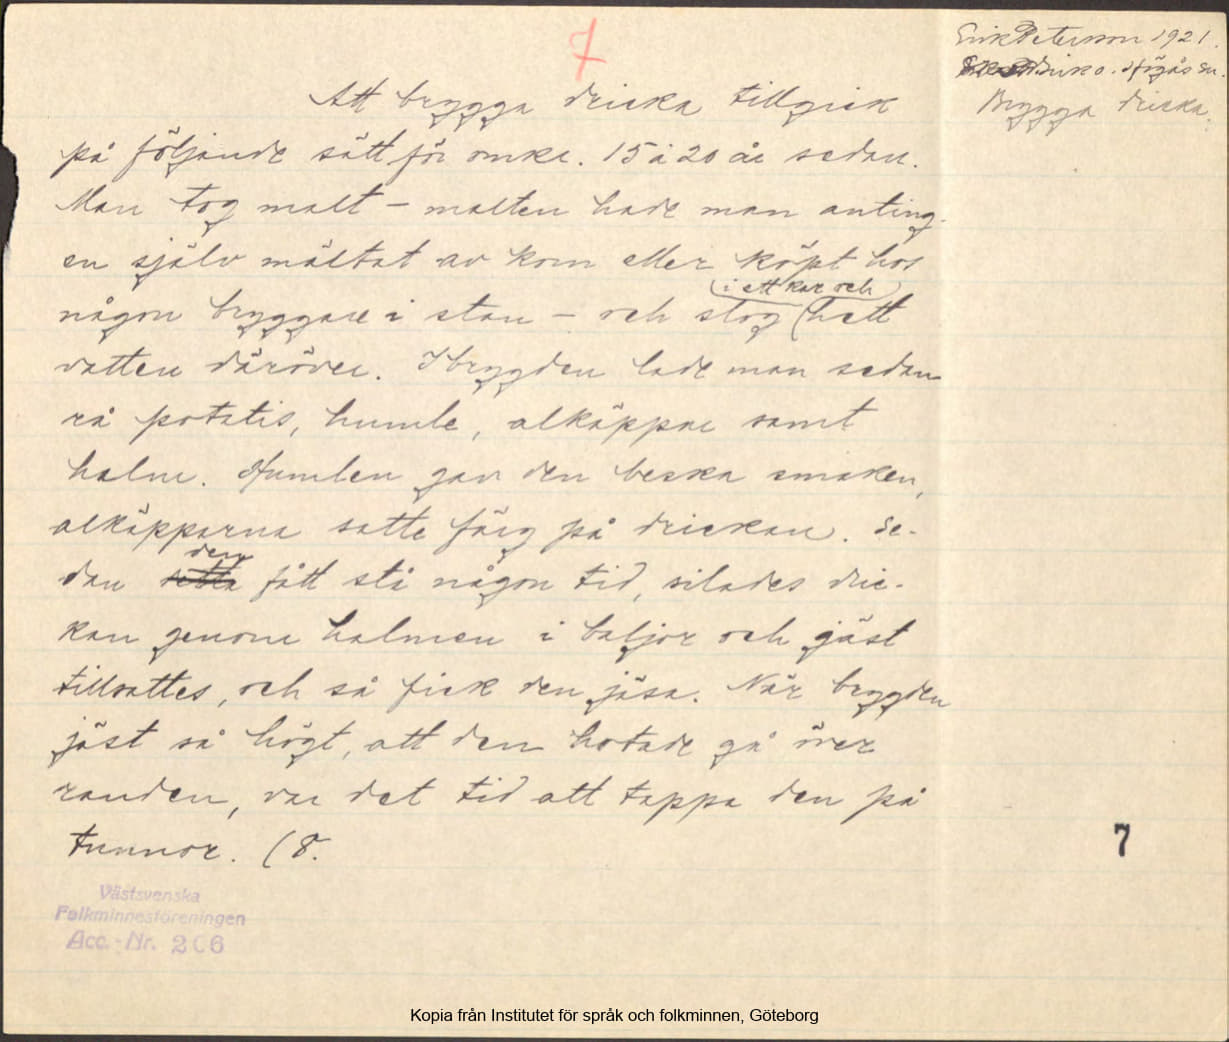 7
Erik Peterson 1921.
Högås sn.
Brygga dricka.
Att brygga dricka tillgick
på följande sätt för omkr. 15 à 20 år sedan.
Man tog malt – malten hade man anting-
en själv mältat av korn eller köpt hos
i ett kar och
någon bryggare i stan – och slog hett
vatten däröver. I brygden lade man sedan
rå potatis, humle, alkäppar samt
halm. Humlen gav den beska smaken,
alkäpparna satte färg på drickan. Se-
den
dan detta fått stå någon tid, silades dric-
kan genom halmen i baljor och jäst
tillsattes, och så fick den jäsa. När brygden
jäst så högt, att den hotade gå över
randen, var det tid att tappa den på
tunnor. (8.
7
Västsvenska
Folkminnesföreningen
Acc.-Nr. 206
Kopia från Institutet för språk och folkminnen, Göteborg